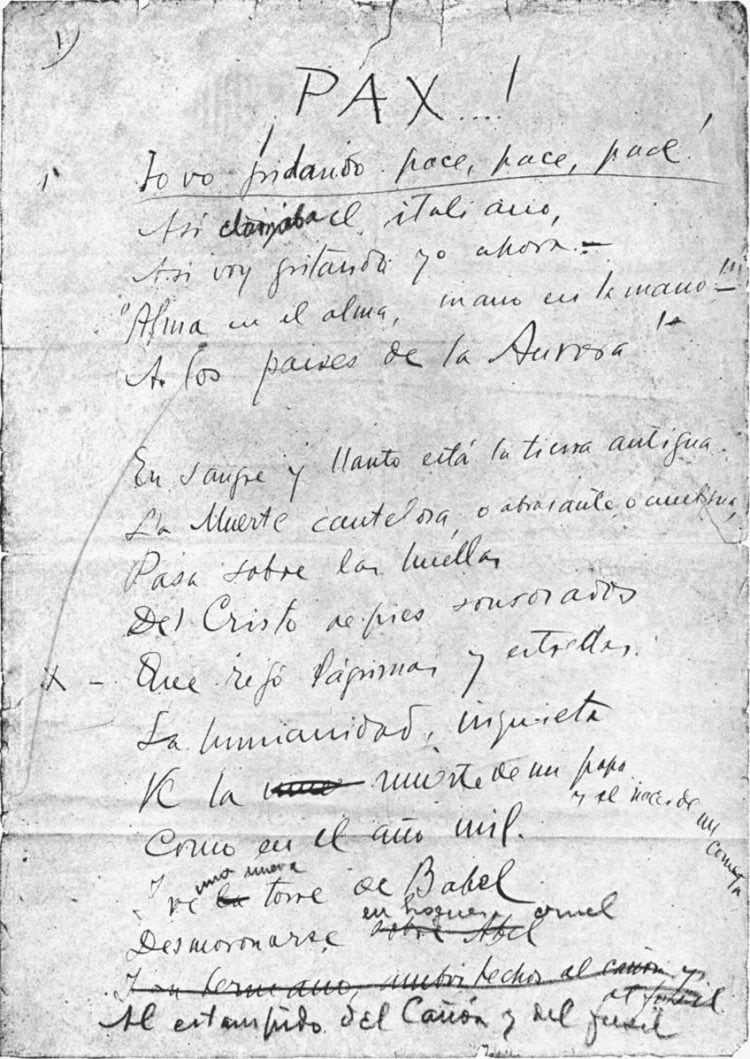 1)
PAX....!
Io vo gridando pace, pace, pace!
Así clamaba el italiano,
Así voy gritando yo ahora.=
"Alma en el alma, mano en la mano–"
A los países de la Aurora!"
En sangre y llanto está la tierra antigua.
La Muerte cautelosa, o abrasante, o ambigua,
Pasa sobre las huellas
Del Cristo de pies sonrosados
X – Que regó lágrimas y estrellas.
La humanidad, inquieta
Ve la muerte de un papa
y el nacer de un cometa
Como en el año mil.
una nueva
Y ve la torre de Babel
en hoguera cruel
Desmoronarse sobre Abel
al fusil
Al estampido del Cañón y del fusil